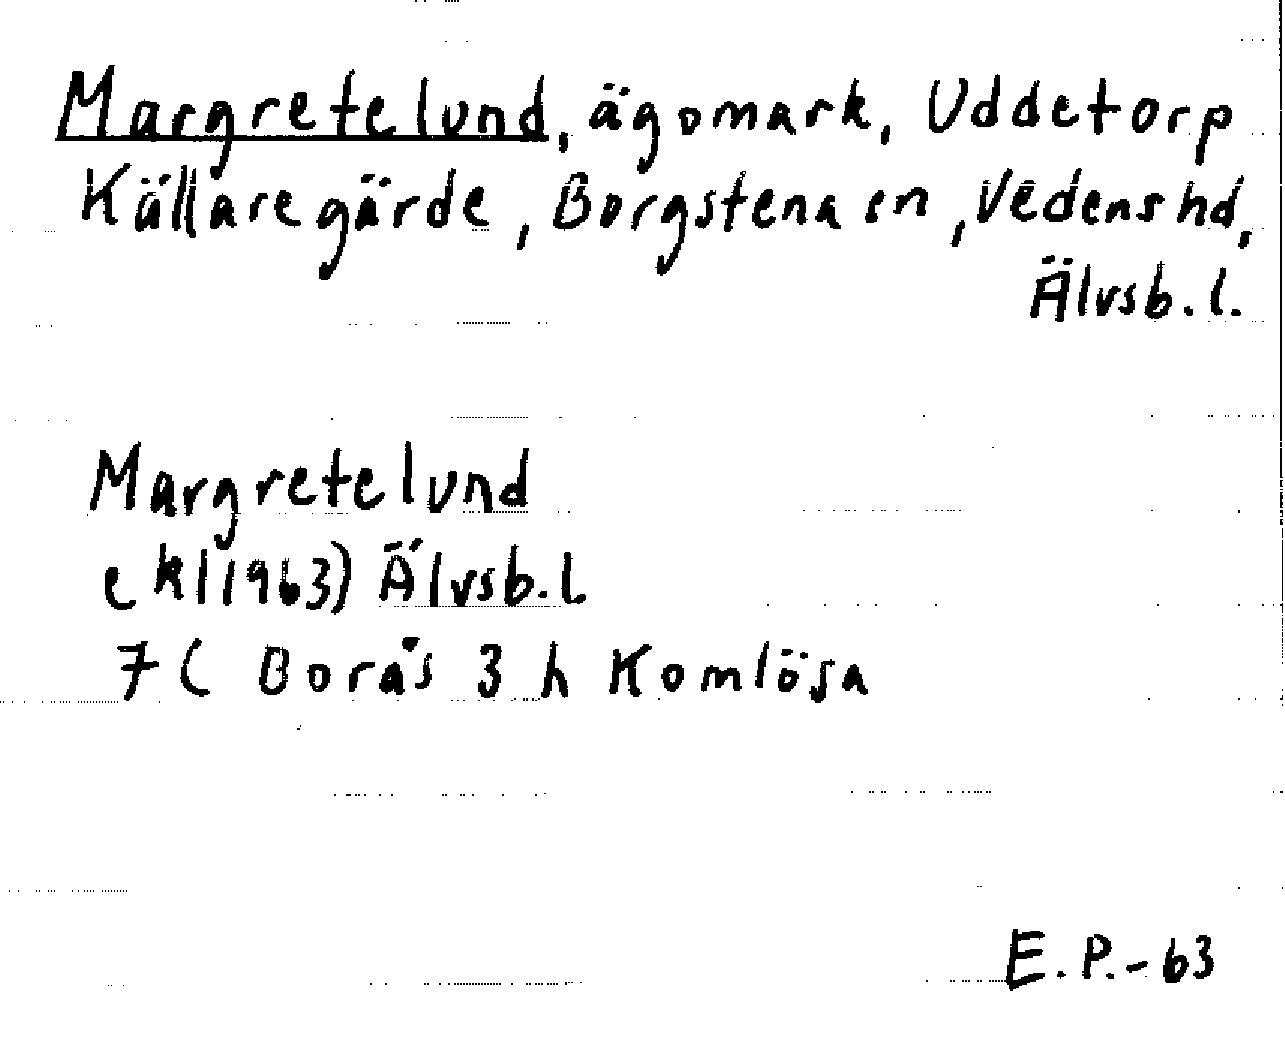 Margretelund, ägomark, Uddetorp
Källaregärde, Borgstena sn, Vedens hd,
Älvsb. l.
Margretelund
ekl 1963) Älvsb. l
7C Borås 3 h Komlösa
E.P.-63